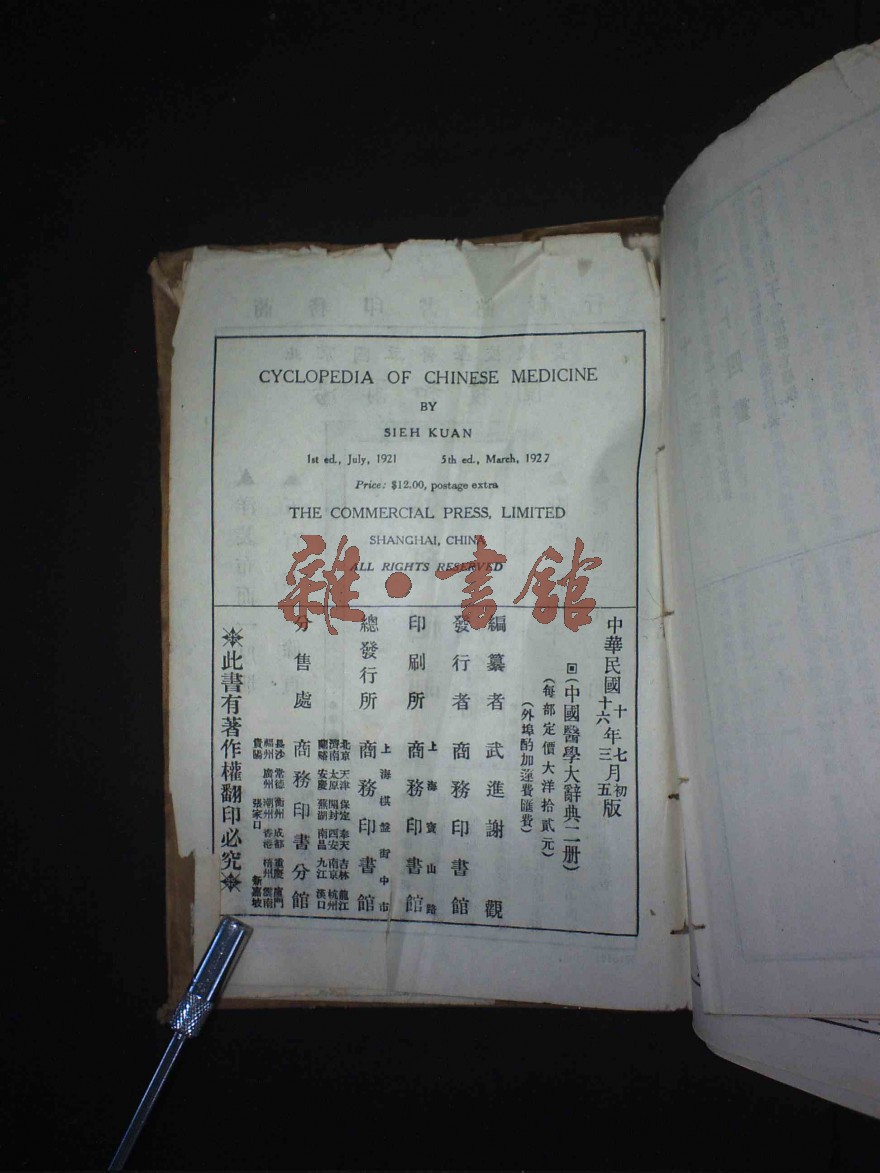 CYCLOPEDIA OF CHINESE MEDICINE
BY
SIEH KUAN
1st ed., July, 1921 5th ed., March, 1927
Price: $12.00, postage extra
THE COMMERCIAL PRESS, LIMITED
SHANGHAI, CHINA
ALL RIGHTS RESERVED
雜·書館
中華民國十年七月初版
十六年三月五版
(中國醫學大辭典二册)
(每部定價大洋拾貳元)
(外埠酌加運費匯費)
編纂者 武進謝觀
發行者 商務印書館
印刷所 上海寶山路 商務印書館
總發行所 上海棋盤街中市 商務印書館
分售處 商務印書分館
北京 天津 保定 奉天 吉林 龍江
濟南 太原 開封 西安 南京 杭州
蘭谿 安慶 蕪湖 南昌 九江 漢口
長沙 常德 衡州 成都 重慶 廈門
福州 廣州 潮州 香港 梧州 雲南
貴陽 張家口 新嘉坡
此書有著作權翻印必究